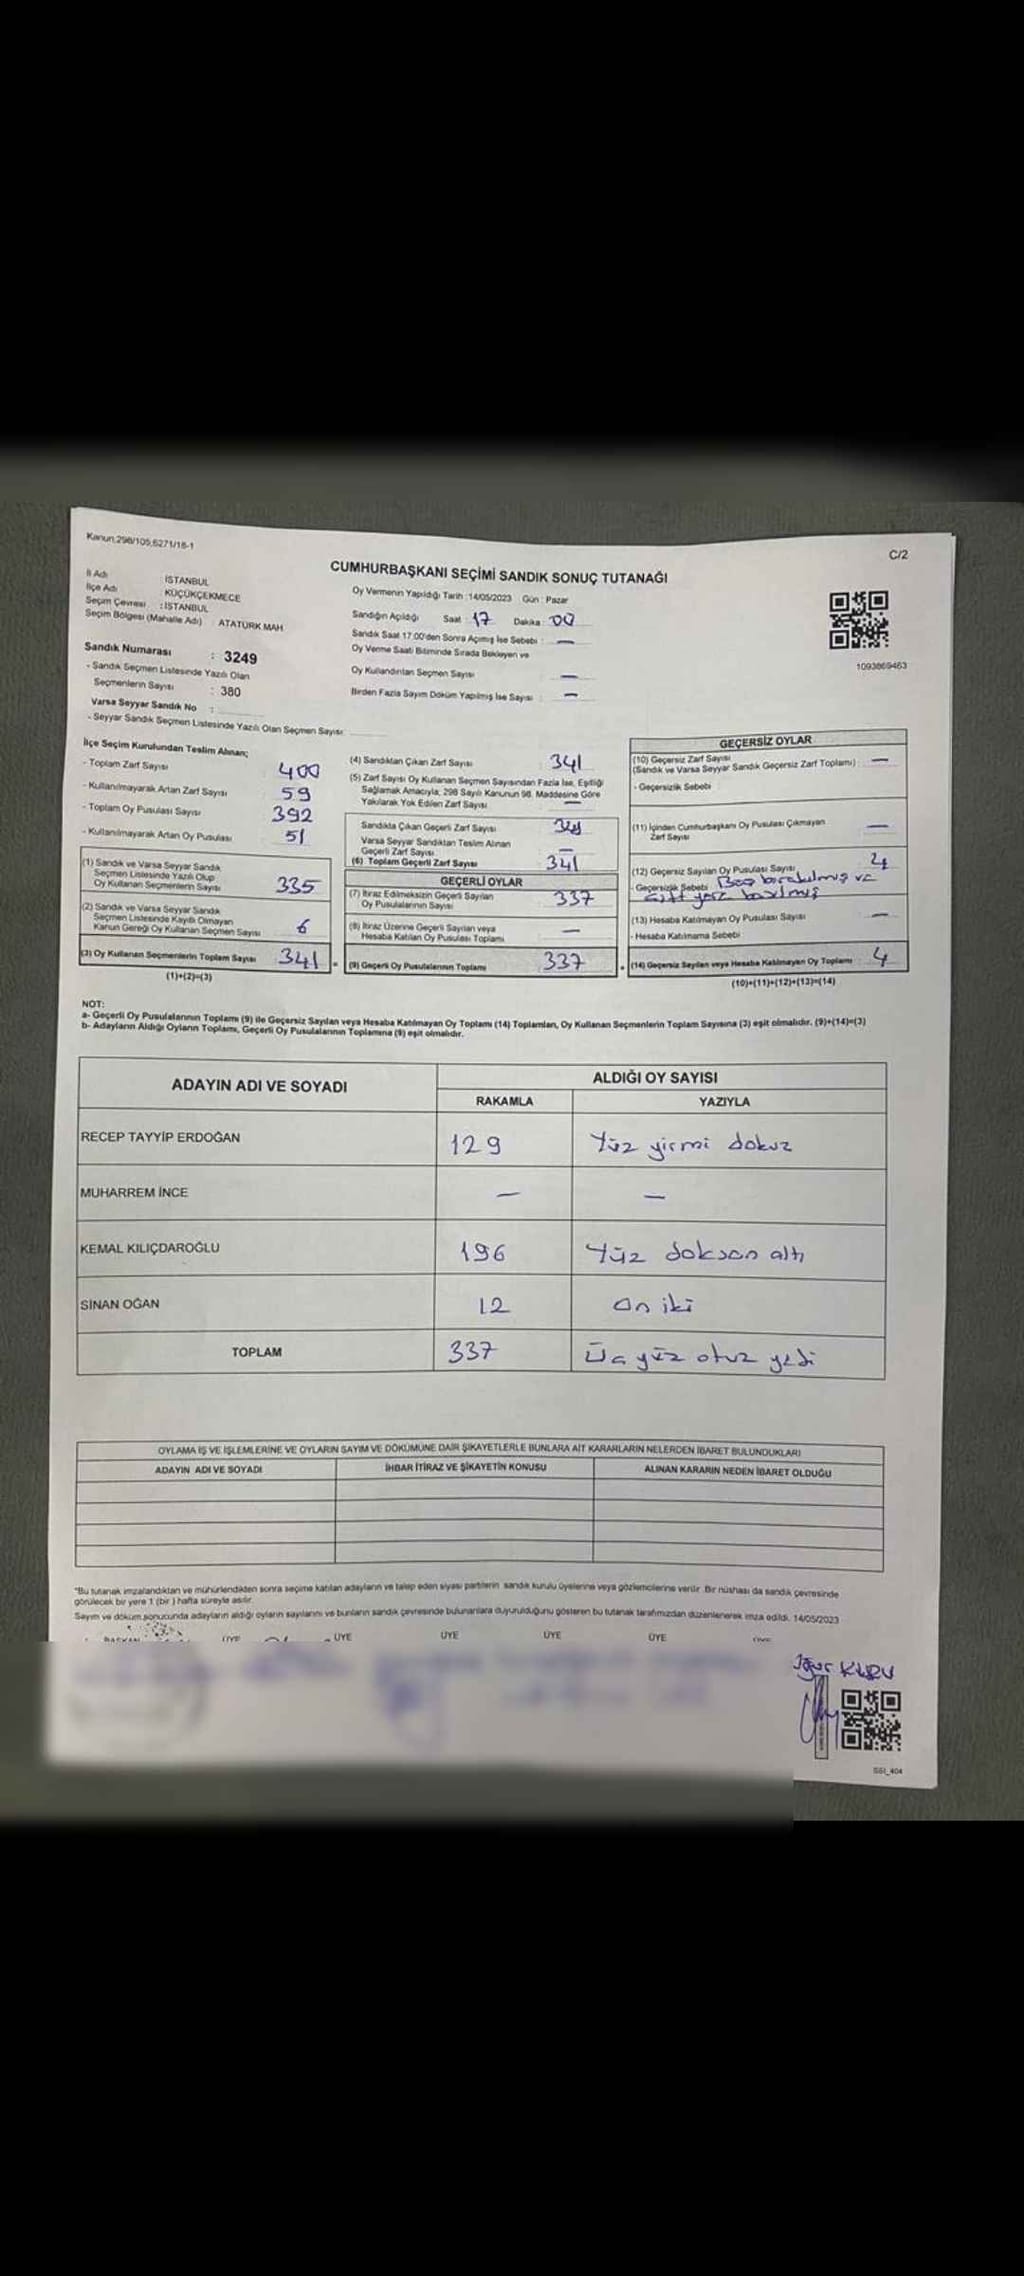 Kanun,298/105,6271/18-1
C/2
CUMHURBAŞKANI SEÇİMİ SANDIK SONUÇ TUTANAĞI
İl Adı : İSTANBUL
İlçe Adı : KÜÇÜKÇEKMECE
Seçim Çevresi : İSTANBUL
Seçim Bölgesi (Mahalle Adı) : ATATÜRK MAH
Sandık Numarası : 3249
- Sandık Seçmen Listesinde Yazılı Olan
Seçmenlerin Sayısı : 380
Varsa Seyyar Sandık No :
- Seyyar Sandık Seçmen Listesinde Yazılı Olan Seçmen Sayısı:
Oy Vermenin Yapıldığı Tarih :14/05/2023 Gün : Pazar
Sandığın Açıldığı Saat : 17 Dakika : 00
Sandık Saat 17:00'den Sonra Açılmış İse Sebebi : —
Oy Verme Saati Bitiminde Sırada Bekleyen ve
Oy Kullandırılan Seçmen Sayısı —
Birden Fazla Sayım Döküm Yapılmış İse Sayısı : —
1093869463
İlçe Seçim Kurulundan Teslim Alınan;
- Toplam Zarf Sayısı 400
- Kullanılmayarak Artan Zarf Sayısı 59
- Toplam Oy Pusulası Sayısı 392
- Kullanılmayarak Artan Oy Pusulası 51
(1) Sandık ve Varsa Seyyar Sandık
Seçmen Listesinde Yazılı Olup
Oy Kullanan Seçmenlerin Sayısı 335
(2) Sandık ve Varsa Seyyar Sandık
Seçmen Listesinde Kayıtlı Olmayan
Kanun Gereği Oy Kullanan Seçmen Sayısı 6
(3) Oy Kullanan Seçmenlerin Toplam Sayısı 341 =
(1)+(2)=(3)
(4) Sandıktan Çıkan Zarf Sayısı 341
(5) Zarf Sayısı Oy Kullanan Seçmen Sayısından Fazla İse, Eşitliği
Sağlamak Amacıyla, 298 Sayılı Kanunun 98. Maddesine Göre
Yakılarak Yok Edilen Zarf Sayısı —
Sandıkta Çıkan Geçerli Zarf Sayısı 341
Varsa Seyyar Sandıktan Teslim Alınan
Geçerli Zarf Sayısı —
(6) Toplam Geçerli Zarf Sayısı 341
GEÇERLİ OYLAR
(7) İtiraz Edilmeksizin Geçerli Sayılan
Oy Pusulalarının Sayısı 337
(8) İtiraz Üzerine Geçerli Sayılan veya
Hesaba Katılan Oy Pusulası Toplamı —
(9) Geçerli Oy Pusulalarının Toplamı 337 +
GEÇERSİZ OYLAR
(10) Geçersiz Zarf Sayısı
(Sandık ve Varsa Seyyar Sandık Geçersiz Zarf Toplamı) : —
- Geçersizlik Sebebi
(11) İçinden Cumhurbaşkanı Oy Pusulası Çıkmayan
Zarf Sayısı —
(12) Geçersiz Sayılan Oy Pusulası Sayısı 4
- Geçersizlik Sebebi Boş bırakılmış ve
çift yere basılmış
(13) Hesaba Katılmayan Oy Pusulası Sayısı —
- Hesaba Katılmama Sebebi
(14) Geçersiz Sayılan veya Hesaba Katılmayan Oy Toplamı : 4
(10)+(11)+(12)+(13)=(14)
NOT:
a- Geçerli Oy Pusulalarının Toplamı (9) ile Geçersiz Sayılan veya Hesaba Katılmayan Oy Toplamı (14) Toplamları, Oy Kullanan Seçmenlerin Toplam Sayısına (3) eşit olmalıdır. (9)+(14)=(3)
b- Adayların Aldığı Oyların Toplamı, Geçerli Oy Pusulalarının Toplamına (9) eşit olmalıdır.
ADAYIN ADI VE SOYADI
ALDIĞI OY SAYISI
RAKAMLA YAZIYLA
RECEP TAYYİP ERDOĞAN 129 Yüz yirmi dokuz
MUHARREM İNCE — —
KEMAL KILIÇDAROĞLU 196 Yüz doksan altı
SİNAN OĞAN 12 on iki
TOPLAM 337 Üç yüz otuz yedi
OYLAMA İŞ VE İŞLEMLERİNE VE OYLARIN SAYIM VE DÖKÜMÜNE DAİR ŞİKAYETLERLE BUNLARA AİT KARARLARIN NELERDEN İBARET BULUNDUKLARI
ADAYIN ADI VE SOYADI İHBAR İTİRAZ VE ŞİKAYETİN KONUSU ALINAN KARARIN NEDEN İBARET OLDUĞU
*Bu tutanak imzalandıktan ve mühürlendikten sonra seçime katılan adayların ve talep eden siyasi partilerin sandık kurulu üyelerine veya gözlemcilerine verilir. Bir nüshası da sandık çevresinde
görülecek bir yere 1 (bir ) hafta süreyle asılır.
Sayım ve döküm sonucunda adayların aldığı oyların sayılarını ve bunların sandık çevresinde bulunanlara duyurulduğunu gösteren bu tutanak tarafımızdan düzenlenerek imza edildi. 14/05/2023
BAŞKAN ÜYE ÜYE ÜYE ÜYE ÜYE ÜYE
KURU
SSI_404